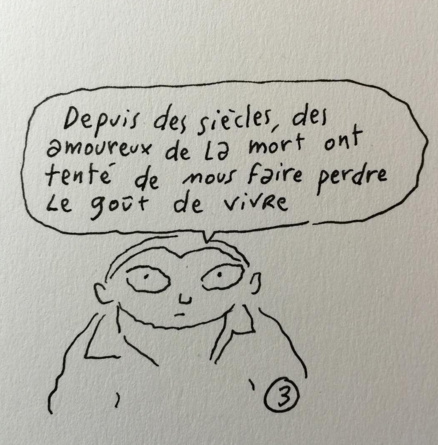 Depuis des siècles, des
amoureux de la mort ont
tenté de nous faire perdre
le goût de vivre
3